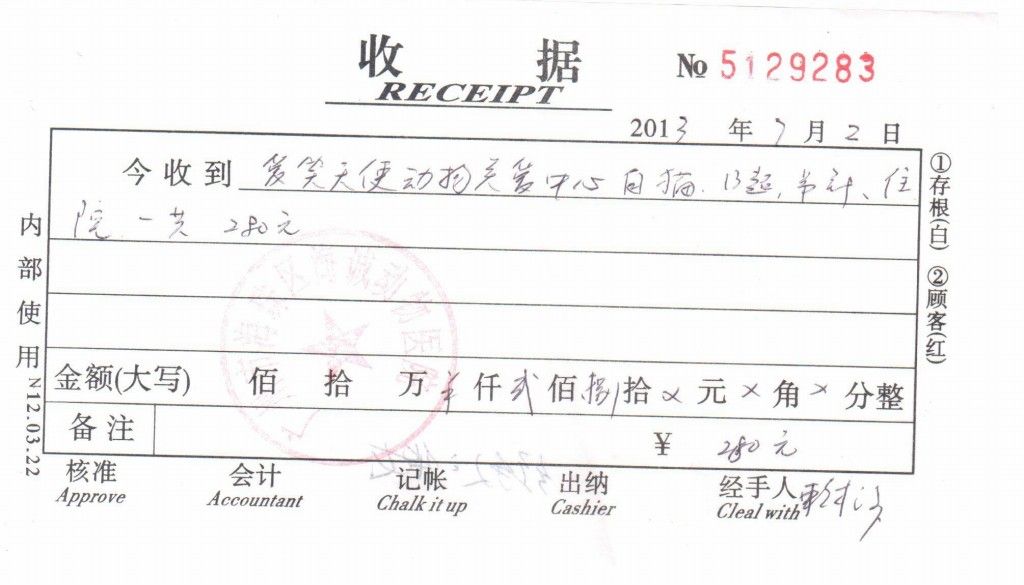 收 据
RECEIPT
№ 5129283
2013 年 7 月 2 日
今收到 爱笑天使动物关爱中心 白猫. B超, 节计、住
院 一共 280元
金额(大写) 佰 拾 万 仟 贰 佰 捌 拾 × 元 × 角 × 分整
备注 ¥ 280元
核准 会计 记帐 出纳 经手人
Approve Accountant Chalk it up Cashier Cleal with
内部使用 N12.03.22
①存根(白) ②顾客(红)
动物医院